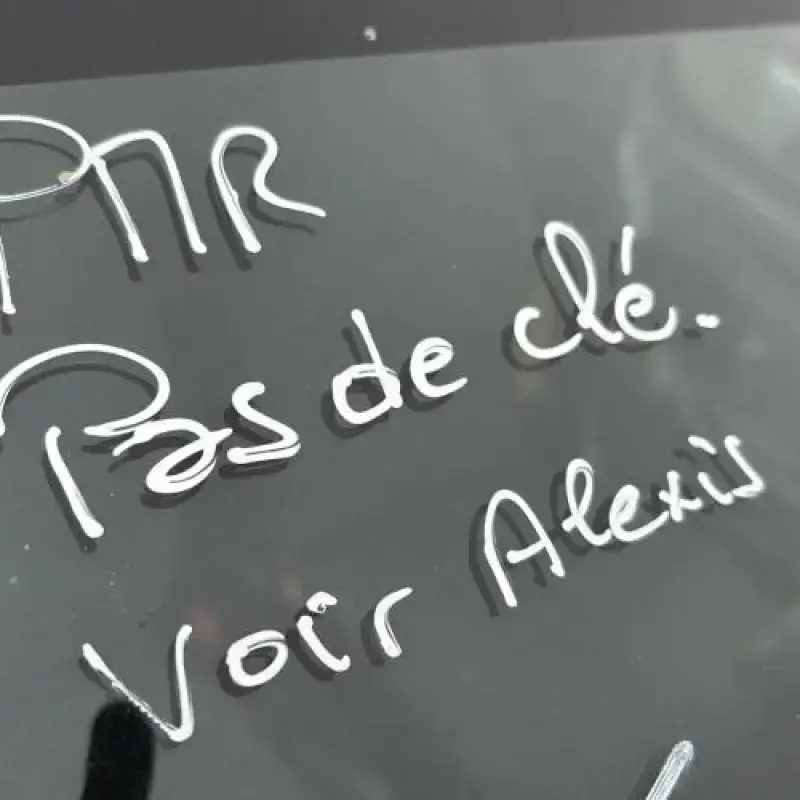 PMR
Pas de clé.
Voir Alexis